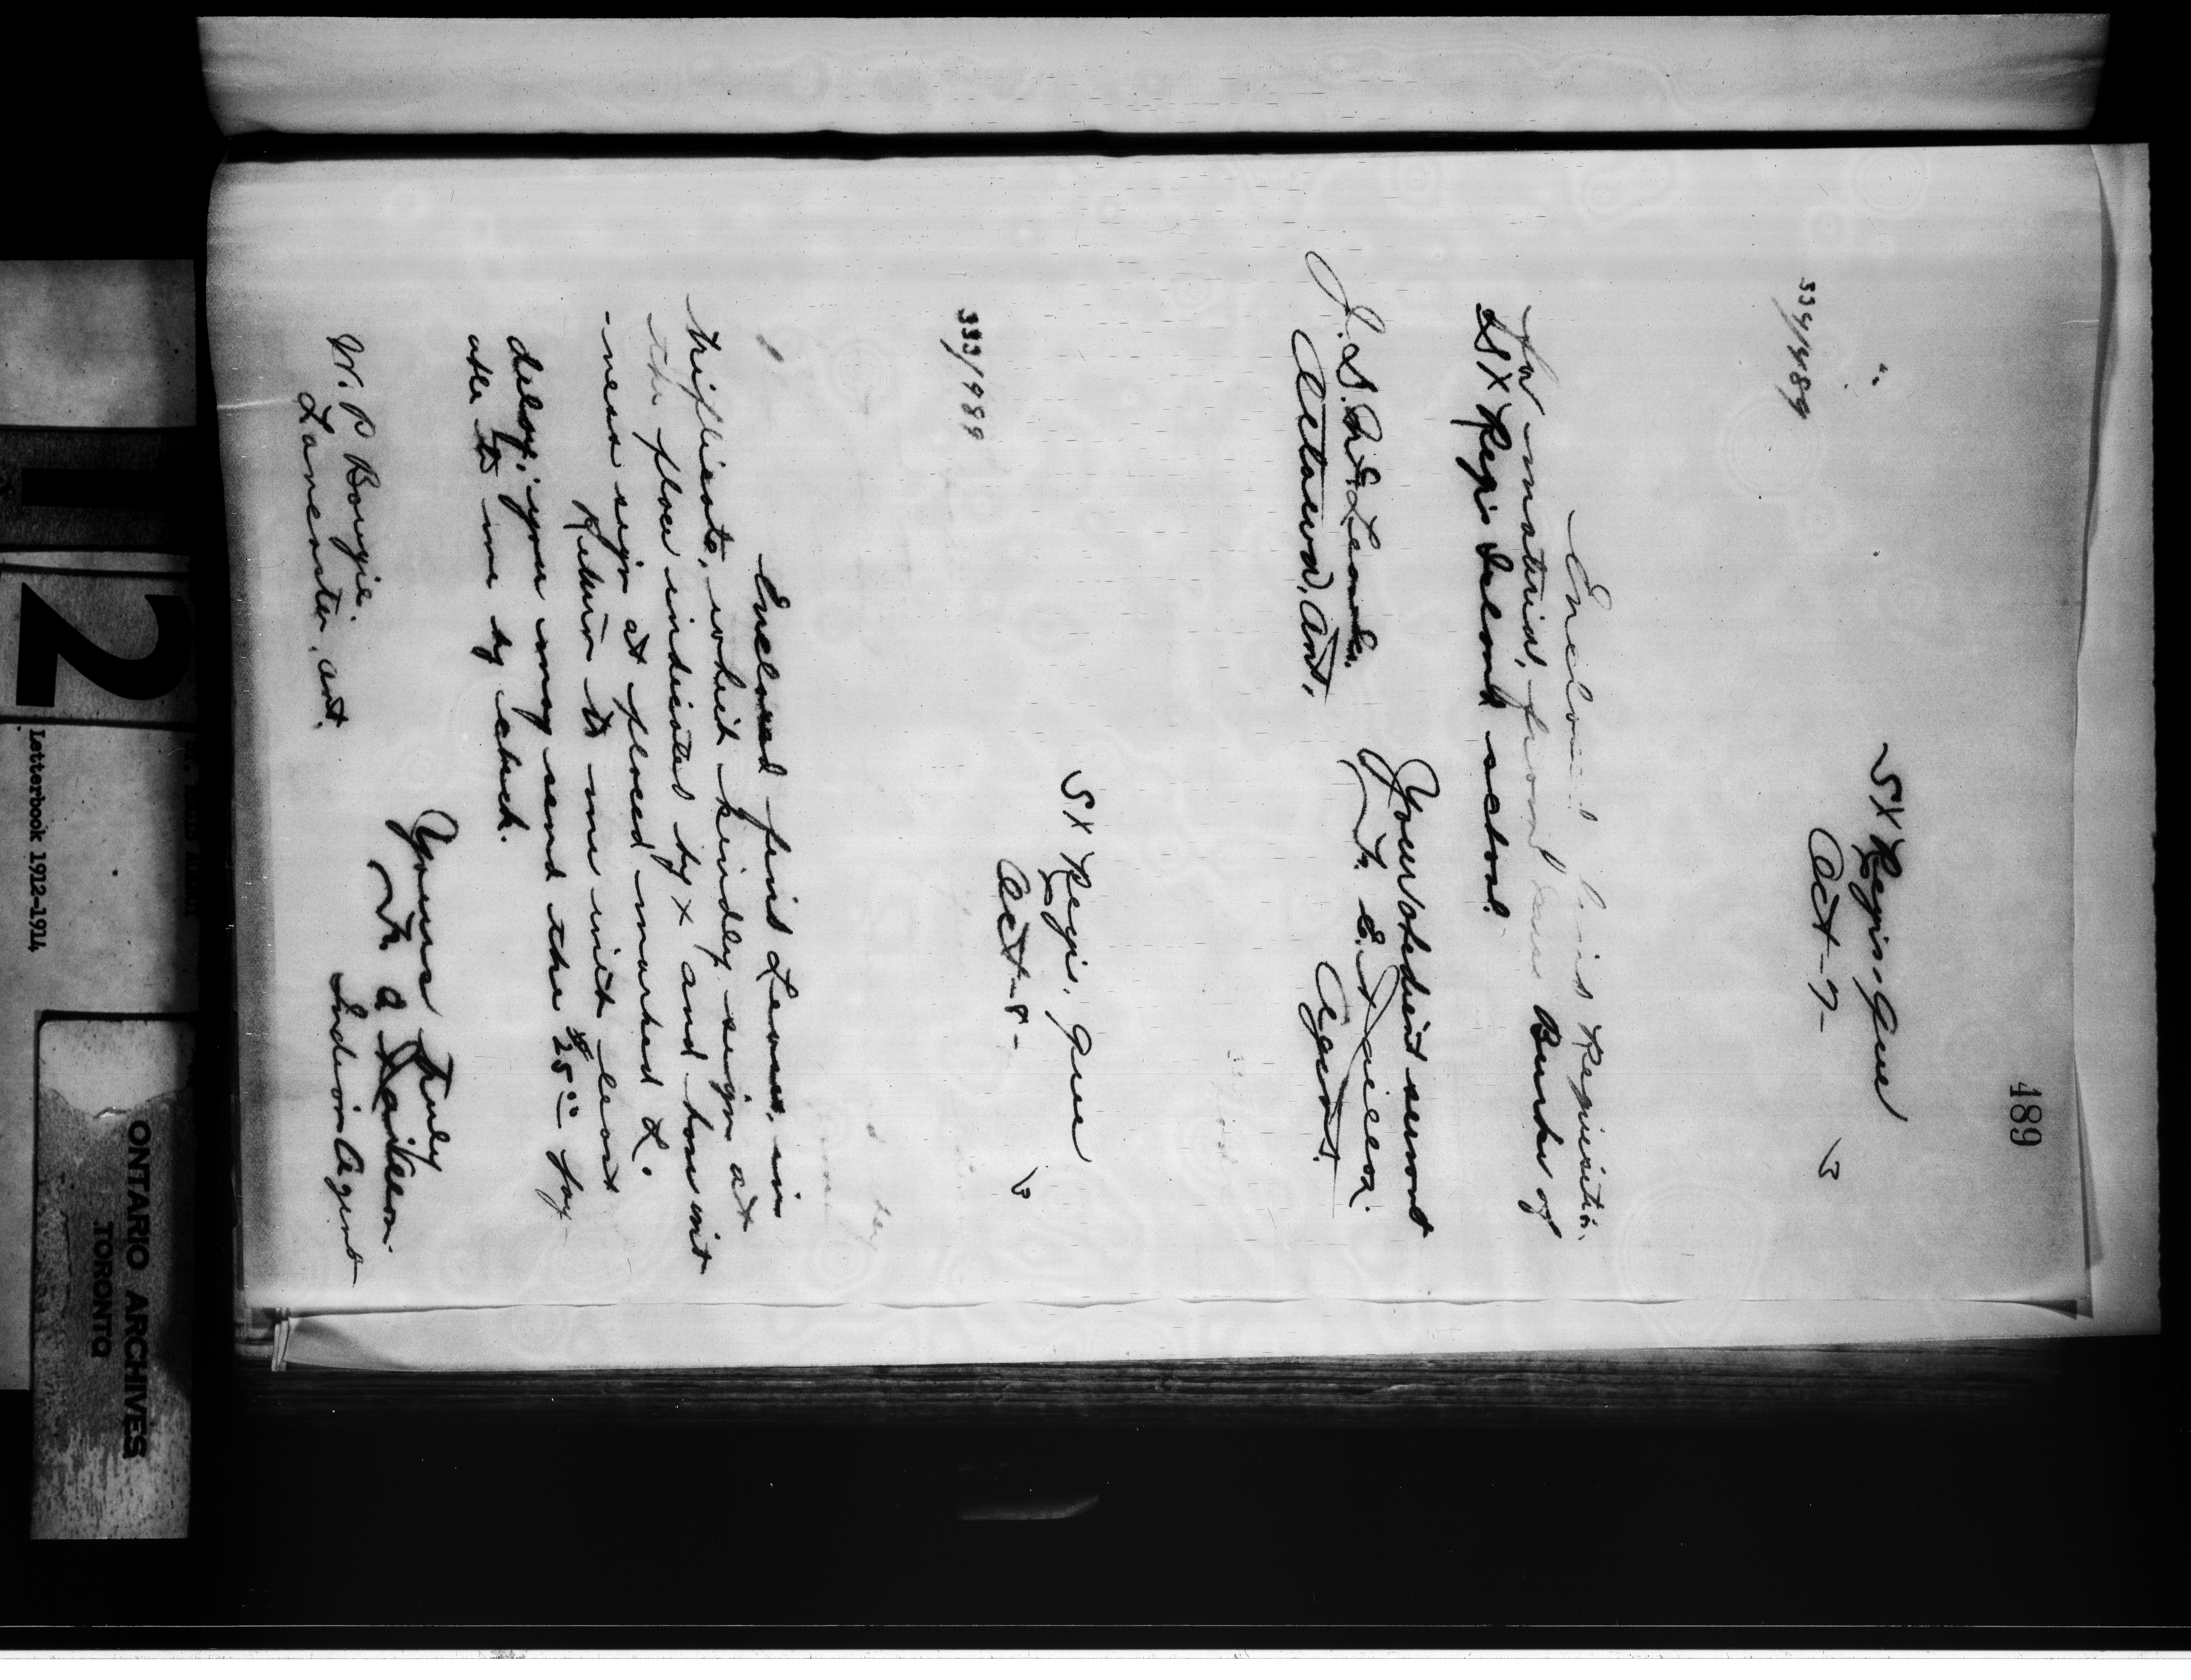 489
St Regis, Que
Oct - 7 - 13
334/489
Enclosed find Requisition
for material, from Miss Burke of
St Regis Island school.
Your obedient servant
Agent.
Ottawa, Ont.
St Regis, Que
Oct - 8 - 13
333/489
Enclosed find Leases, in
triplicate, which kindly sign at
the place indicated by x and have wit
-ness sign at placed marked L.
Return to me with least
delay: you may send the $25.00 pay
able to me by check.
Yours truly
Indian Agent
W. P. Bougie.
Lancaster, Ont.
2
Letterbook 1912-1914
ONTARIO ARCHIVES
TORONTO